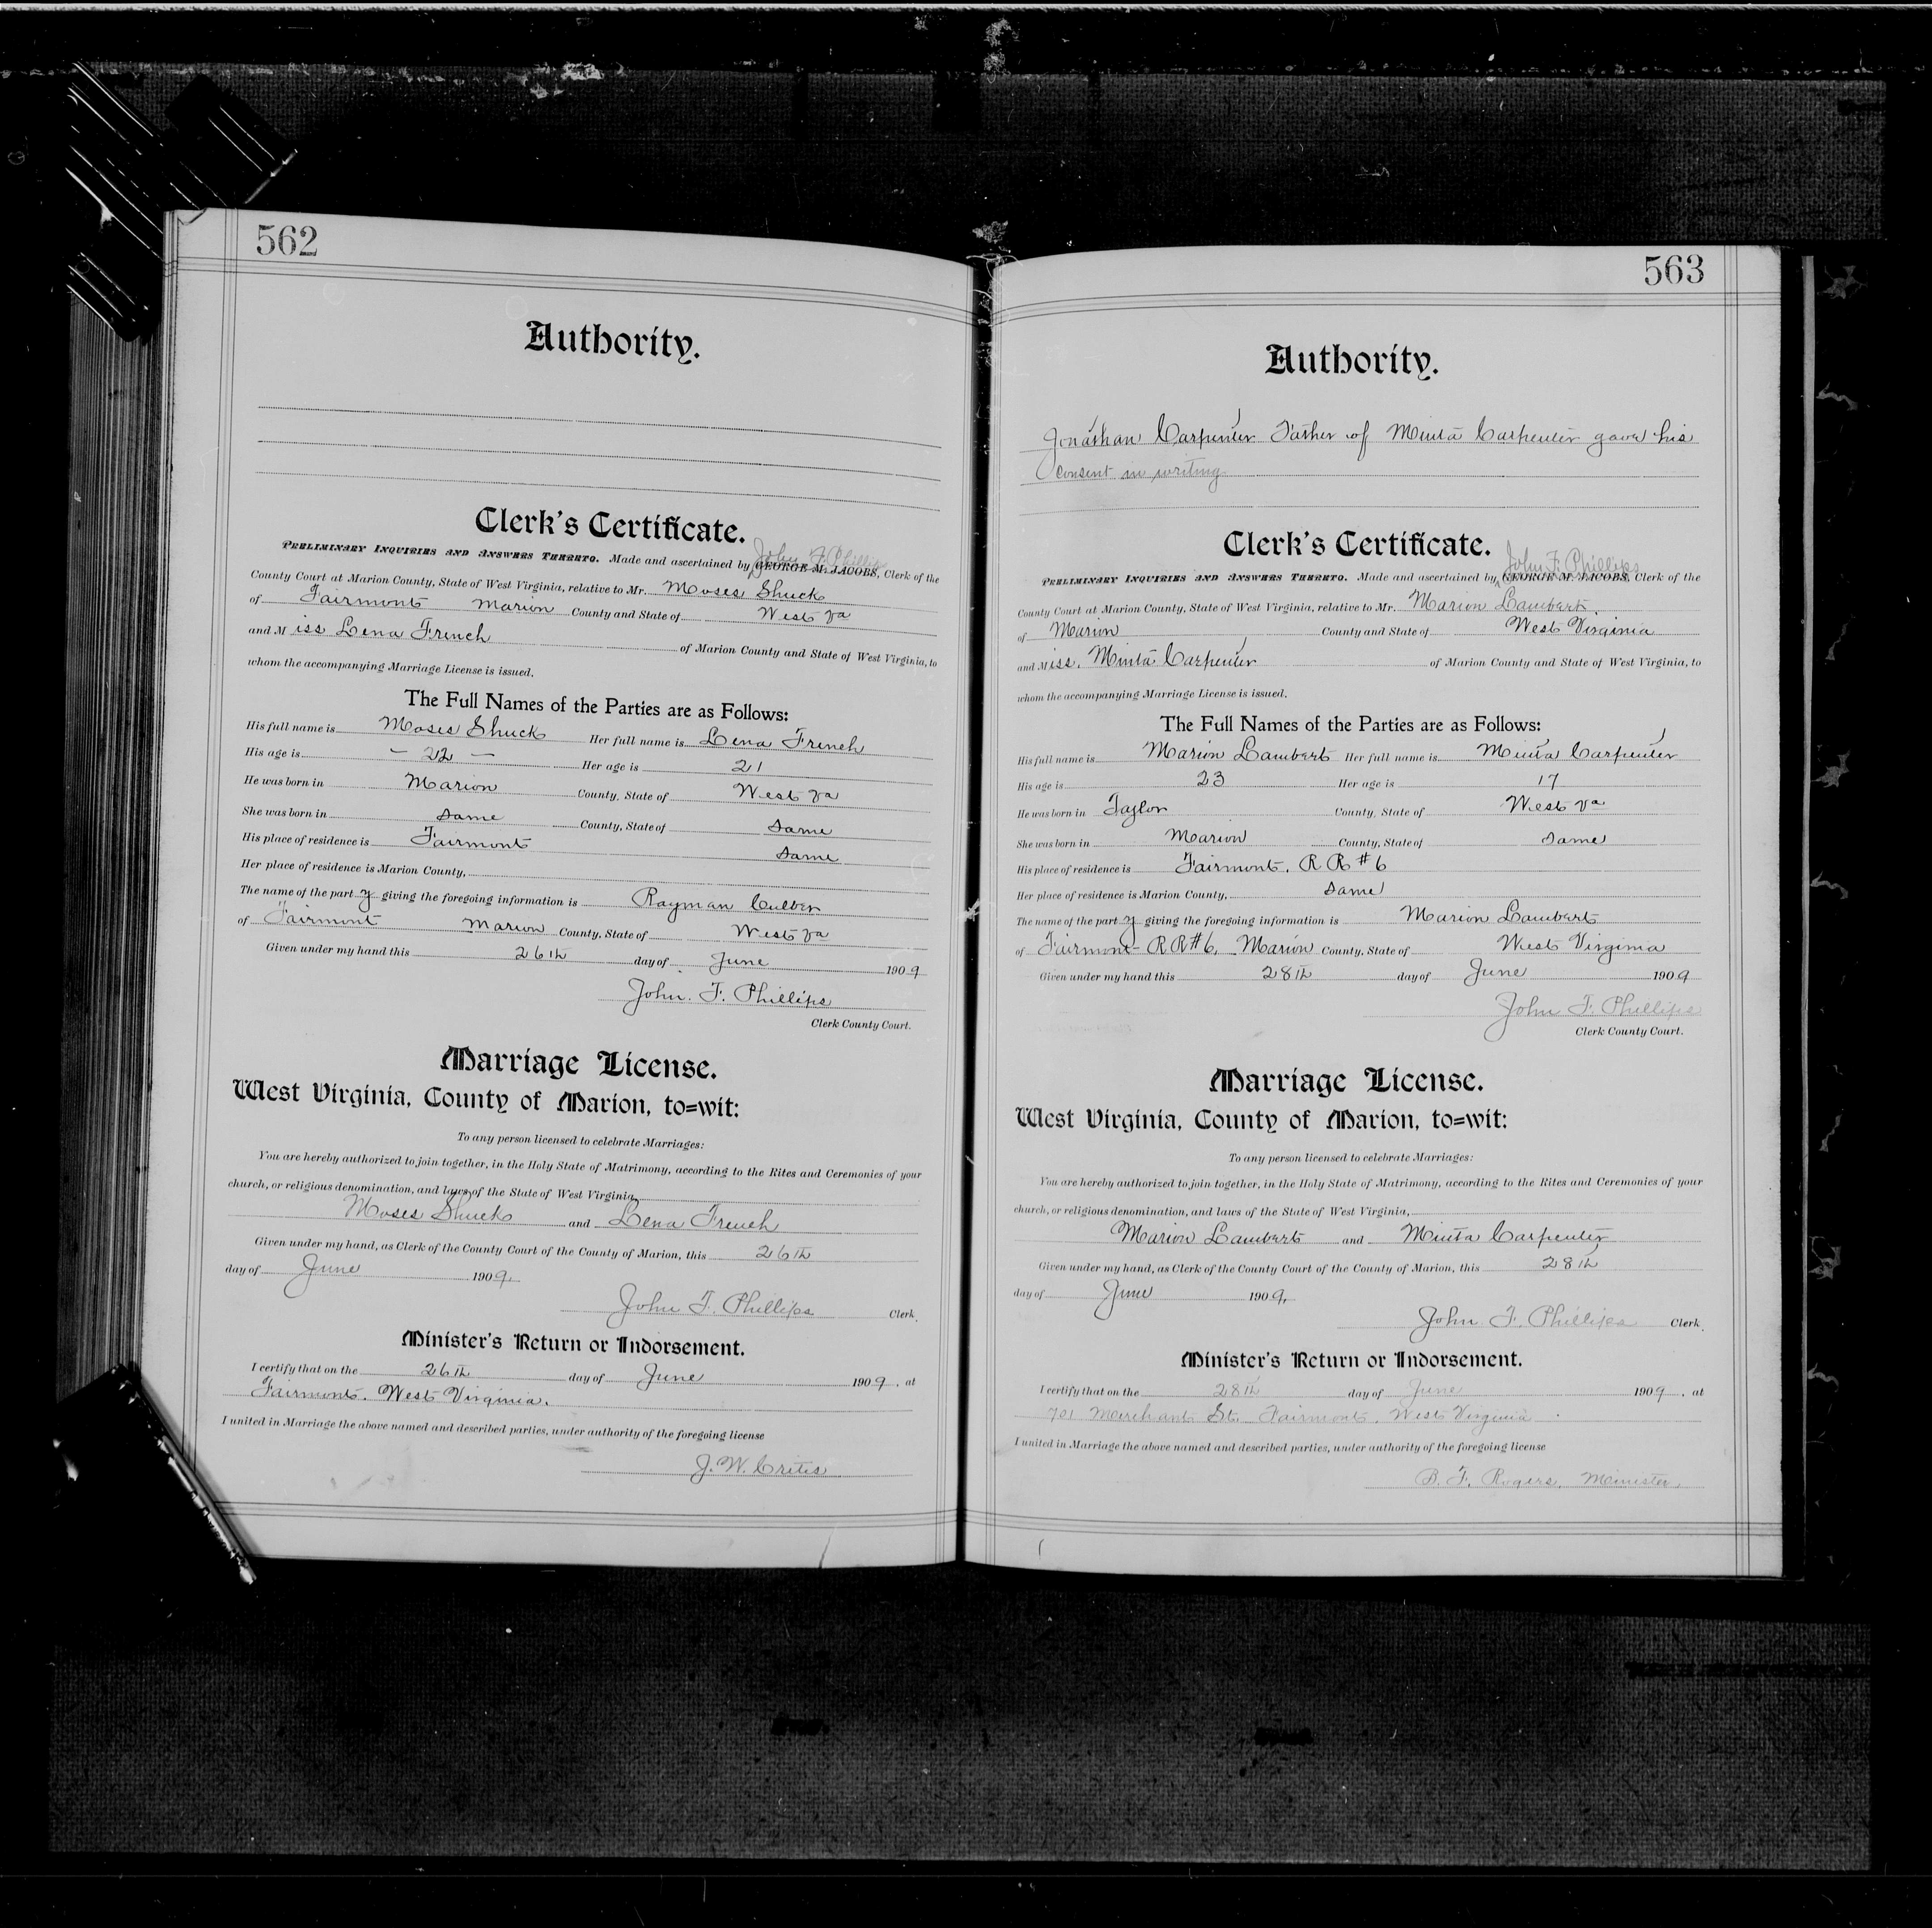 562
Authority.
Clerk's Certificate.
John F. Phillips
PRELIMINARY INQUIRIES AND ANSWERS THERETO. Made and ascertained by GEORGE M. JACOBS, Clerk of the
County Court at Marion County, State of West Virginia, relative to Mr. Moses Shuck
of Fairmont Marion County and State of West Va
and Miss Lena French of Marion County and State of West Virginia, to
whom the accompanying Marriage License is issued.
The Full Names of the Parties are as Follows:
His full name is Moses Shuck Her full name is Lena French
His age is – 22 – Her age is 21
He was born in Marion County, State of West Va
She was born in Same County, State of Same
His place of residence is Fairmont
Same
Her place of residence is Marion County,
The name of the party giving the foregoing information is Rayman Culber
of Fairmont Marion County, State of West Va
Given under my hand this 26th day of June 1909
John. F. Phillips
Clerk County Court.
Marriage License.
West Virginia, County of Marion, to=wit:
To any person licensed to celebrate Marriages:
You are hereby authorized to join together, in the Holy State of Matrimony, according to the Rites and Ceremonies of your
church, or religious denomination, and laws of the State of West Virginia,
Moses Shuck and Lena French
Given under my hand, as Clerk of the County Court of the County of Marion, this 26th
day of June 1909.
John F. Phillips Clerk.
Minister's Return or Indorsement.
I certify that on the 26th day of June 1909, at
Fairmont. West Virginia.
I united in Marriage the above named and described parties, under authority of the foregoing license
J. W. Crites
563
Authority.
Jonathan Carpenter Father of Minta Carpenter gave his
consent in writing
Clerk's Certificate.
John F. Phillips
PRELIMINARY INQUIRIES AND ANSWERS THERETO. Made and ascertained by GEORGE M. JACOBS, Clerk of the
County Court at Marion County, State of West Virginia, relative to Mr. Marion Lambert.
of Marion County and State of West Virginia
and Miss. Minta Carpenter of Marion County and State of West Virginia, to
whom the accompanying Marriage License is issued.
The Full Names of the Parties are as Follows:
His full name is Marion Lambert Her full name is Minta Carpenter
His age is 23 Her age is 17
He was born in Taylor County, State of West Va
She was born in Marion County, State of Same
His place of residence is Fairmont. R R # 6
Her place of residence is Marion County, Same
The name of the party giving the foregoing information is Marion Lambert
of Fairmont R R # 6, Marion County, State of West Virginia
Given under my hand this 28th day of June 1909
John F. Phillips
Clerk County Court.
Marriage License.
West Virginia, County of Marion, to=wit:
To any person licensed to celebrate Marriages:
You are hereby authorized to join together, in the Holy State of Matrimony, according to the Rites and Ceremonies of your
church, or religious denomination, and laws of the State of West Virginia,
Marion Lambert and Minta Carpenter
Given under my hand, as Clerk of the County Court of the County of Marion, this 28th
day of June 1909.
John. F. Phillips Clerk.
Minister's Return or Indorsement.
I certify that on the 28th day of June 1909, at
701 Merchant St. Fairmont. West Virginia
I united in Marriage the above named and described parties, under authority of the foregoing license
B. F. Rogers, Minister